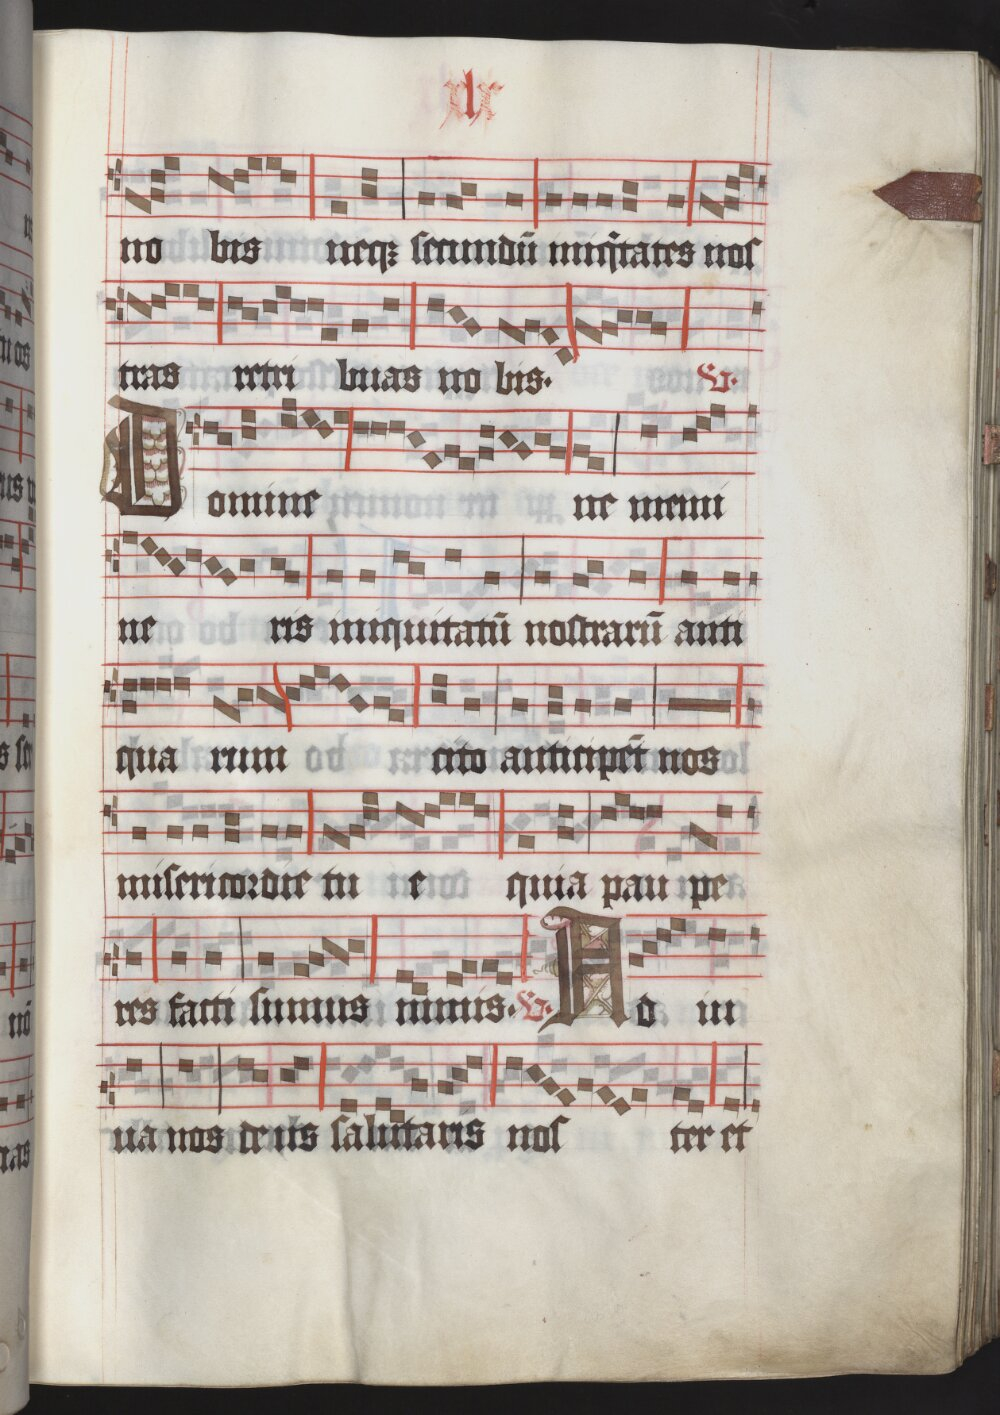 xlx
no bis neqꝫ secundū iniq̄tates nos
tras retri buas no bis· ℣·
Domine ne memi
ne ris iniquitatū nostrarū anti
qua rum cito anticipēt nos
misericordie tu e quia pau pe
res facti sumus nimis· ℣· Ad iu
ua nos deus salutaris nos ter et